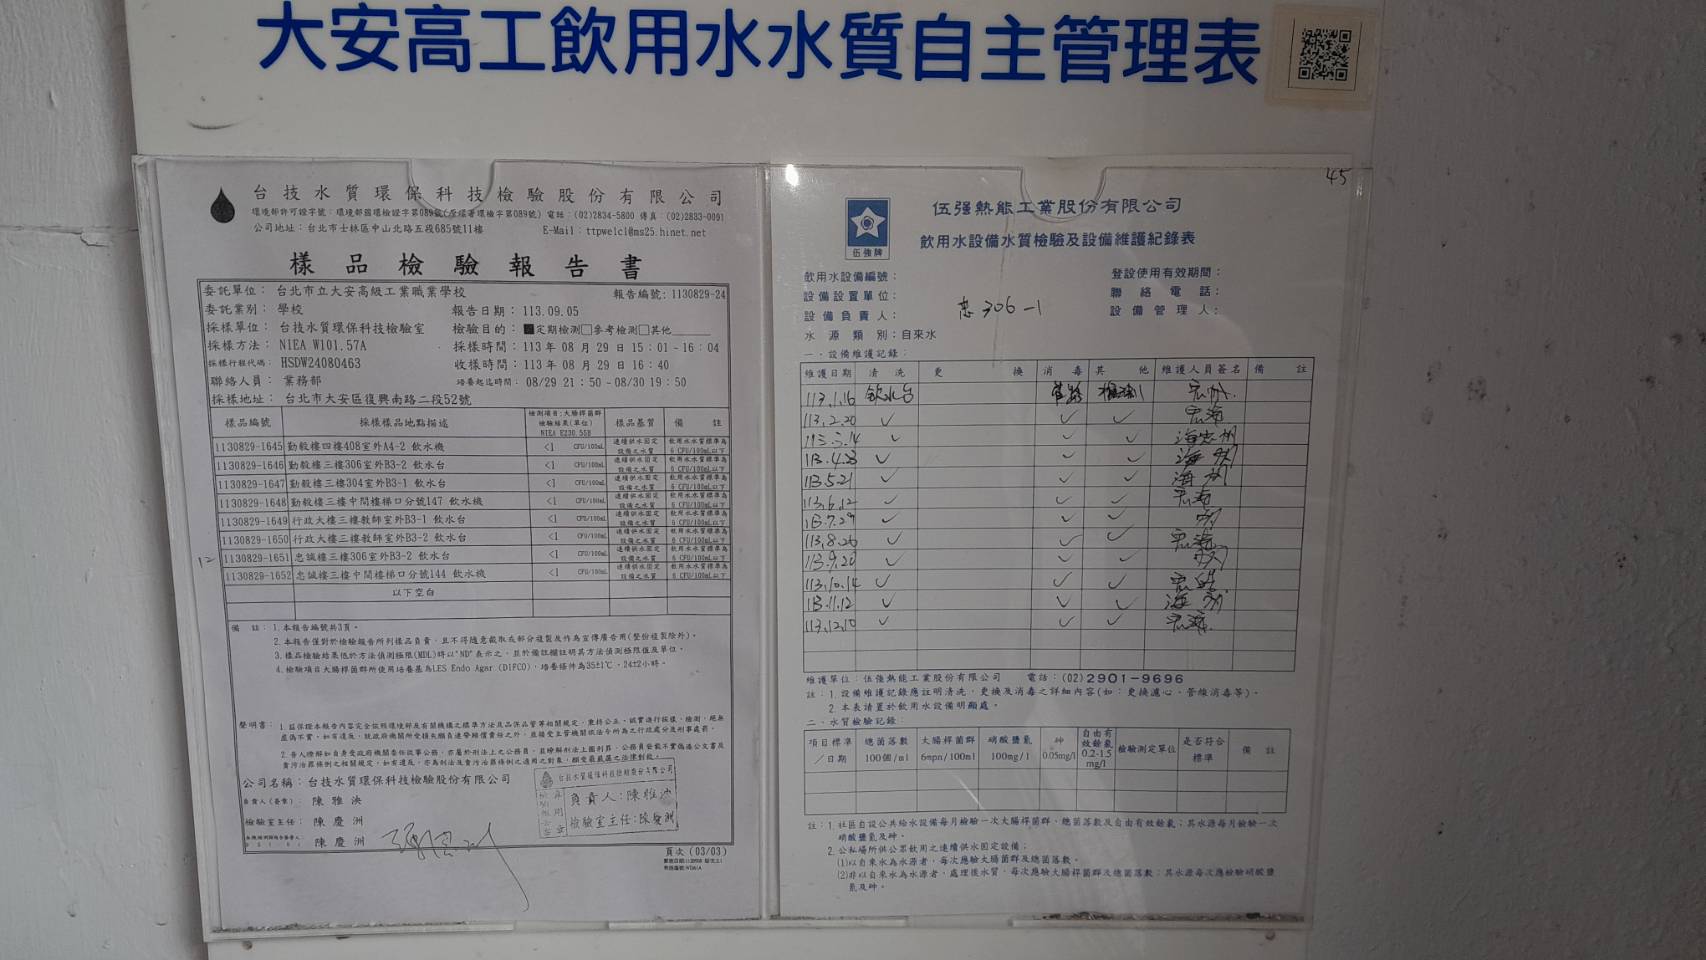 大安高工飲用水水質自主管理表
台技水質環保科技檢驗股份有限公司
環境部許可證字號：環境部國環檢證字第089號(原環署環檢字第089號) 電話：(02)2834-5800 傳真：(02)2833-0091
公司地址：台北市士林區中山北路五段685號11樓 E-Mail：ttpwelcl@ms25.hinet.net
樣品檢驗報告書
委託單位：台北市立大安高級工業職業學校 報告編號：1130829-24
委託業別：學校 報告日期：113.09.05
採樣單位：台技水質環保科技檢驗室 檢驗目的：■定期檢測□參考檢測□其他
採樣方法：NIEA W101.57A 採樣時間：113年08月29日15：01-16：04
採樣行程代碼：HSDW24080463 收樣時間：113年08月29日16：40
聯絡人員：業務部 培養起迄時間：08/29 21：50-08/30 19：50
採樣地址：台北市大安區復興南路二段52號
樣品編號 採樣樣品地點描述 檢測項目:大腸桿菌群 檢驗結果(單位) NIEA E230.55B 樣品基質 備註
1130829-1645 勤毅樓四樓408室外A4-2 飲水機 <1 CFU/100mL 連續供水固定設備之水質 飲用水水質標準為6 CFU/100mL以下
1130829-1646 勤毅樓三樓306室外B3-2 飲水台 <1 CFU/100mL 連續供水固定設備之水質 飲用水水質標準為6 CFU/100mL以下
1130829-1647 勤毅樓三樓304室外B3-1 飲水台 <1 CFU/100mL 連續供水固定設備之水質 飲用水水質標準為6 CFU/100mL以下
1130829-1648 勤毅樓三樓中間樓梯口分號147 飲水機 <1 CFU/100mL 連續供水固定設備之水質 飲用水水質標準為6 CFU/100mL以下
1130829-1649 行政大樓三樓教師室外B3-1 飲水台 <1 CFU/100mL 連續供水固定設備之水質 飲用水水質標準為6 CFU/100mL以下
1130829-1650 行政大樓三樓教師室外B3-2 飲水台 <1 CFU/100mL 連續供水固定設備之水質 飲用水水質標準為6 CFU/100mL以下
12 1130829-1651 忠誠樓三樓306室外B3-2 飲水台 <1 CFU/100mL 連續供水固定設備之水質 飲用水水質標準為6 CFU/100mL以下
1130829-1652 忠誠樓三樓中間樓梯口分號144 飲水機 <1 CFU/100mL 連續供水固定設備之水質 飲用水水質標準為6 CFU/100mL以下
以下空白
備註：1.本報告編號共3頁。
2.本報告僅對於檢驗報告所列樣品負責，且不得隨意截取或部分複製及作為宣傳廣告用(整份複製除外)。
3.樣品檢驗結果低於方法偵測極限(MDL)時以"ND"表示之，且於備註欄註明其方法偵測極限值及單位。
4.檢驗項目大腸桿菌群所使用培養基為LES Endo Agar (DIFCO)，培養條件為35±1℃、24±2小時。
公司名稱：台技水質環保科技檢驗股份有限公司
負責人(簽章)：陳雅泱
檢驗室主任：陳慶洲
陳慶洲
台技水質環保科技檢驗股份有限公司
負責人：陳雅泱
檢驗室主任：陳慶洲
頁次(03/03)
45
伍強牌
伍强熱能工業股份有限公司
飲用水設備水質檢驗及設備維護紀錄表
飲用水設備編號： 登設使用有效期間：
設備設置單位： 聯絡電話：
設備負責人： 忠306-1 設備管理人：
水源類別：自來水
一．設備維護記錄：
維護日期 清洗 更換 消毒 其他 維護人員簽名 備註
113.1.16 飲水台 ✓
113.2.20 ✓ ✓ ✓
113.3.14 ✓ ✓ ✓
113.4.23 ✓ ✓ ✓
113.5.21 ✓ ✓ ✓
113.6.12 ✓ ✓ ✓
113.7.29 ✓ ✓ ✓
113.8.26 ✓ ✓ ✓
113.9.20 ✓ ✓ ✓
113.10.14 ✓ ✓ ✓
113.11.12 ✓ ✓ ✓
113.12.10 ✓ ✓ ✓
維護單位：伍強熱能工業股份有限公司 電話：(02)2901-9696
註：1.設備維護記錄應註明清洗，更換及消毒之詳細內容(如：更換濾心、管線消毒等)。
2.本表請置於飲用水設備明顯處。
二．水質檢驗記錄：
項目標準／日期 總菌落數 100個/ml 大腸桿菌群 6mpn/100ml 硝酸鹽氮 100mg/l 砷 0.05mg/l 自由有效餘氯 0.2-1.5 mg/l 檢驗測定單位 是否符合標準 備註
註：1.社區自設公共給水設備每月檢驗一次大腸桿菌群、總菌落數及自由有效餘氯；其水源每月檢驗一次
硝酸鹽氮及砷。
2.公私場所供公眾飲用之連續供水固定設備：
(1)以自來水為水源者，每次應驗大腸菌群及總菌落數。
(2)非以自來水為水源者，處理後水質，每次應驗大腸桿菌群及總菌落數；其水源每次應檢驗硝酸鹽
氮及砷。